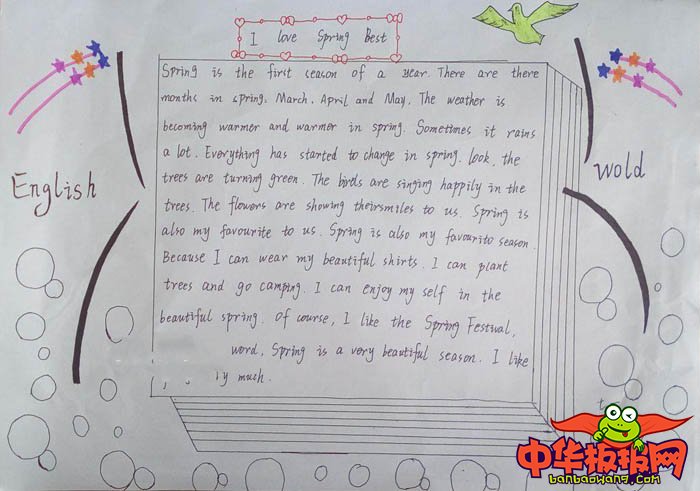 I love Spring Best
Spring is the first season of a year. There are there
months in spring: March, April and May. The weather is
becoming warmer and warmer in spring. Sometimes it rains
a lot. Everything has started to change in spring. look, the
trees are turning green. The birds are singing happily in the
trees. The flowers are showing theirsmiles to us. Spring is
also my favourite to us. Spring is also my favourito season.
Because I can wear my beautiful shirts. I can plant
trees and go camping. I can enjoy my self in the
beautiful spring. Of course, I like the Spring Festival,
word, Spring is a very beautiful season. I like
much.
English
wold
中华板报网
banbaowang.com